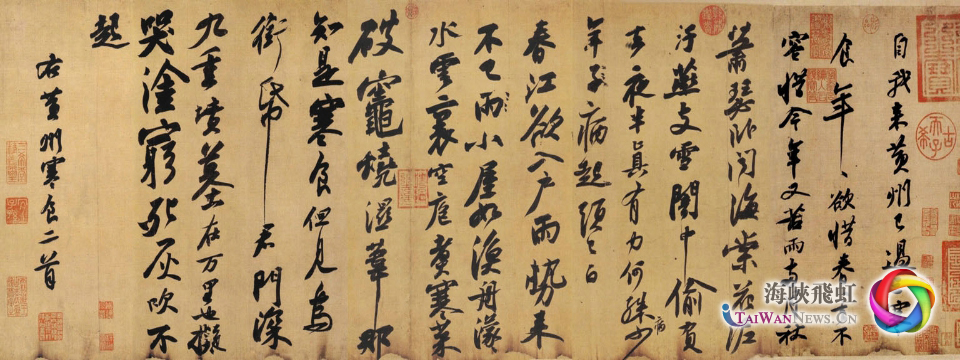 自我来黄州已過
食年〻欲惜春去不
容惜今年又苦雨兩月秋
蕭瑟卧聞海棠花泥
汙燕支雪闇中偷負
去夜半真有力何殊少
病
年子病起頭已白
春江欲入戶雨勢来
不已雨小屋如漁舟濛〻
水雲裏空庖煮寒菜
破竈燒濕葦那
知是寒食但見烏
銜帋君門深
九重墳墓在万里也擬
哭塗窮死灰吹不
起
右黄州寒食二首
古希天子
海峽飛虹
TAIWANNEWS.CN